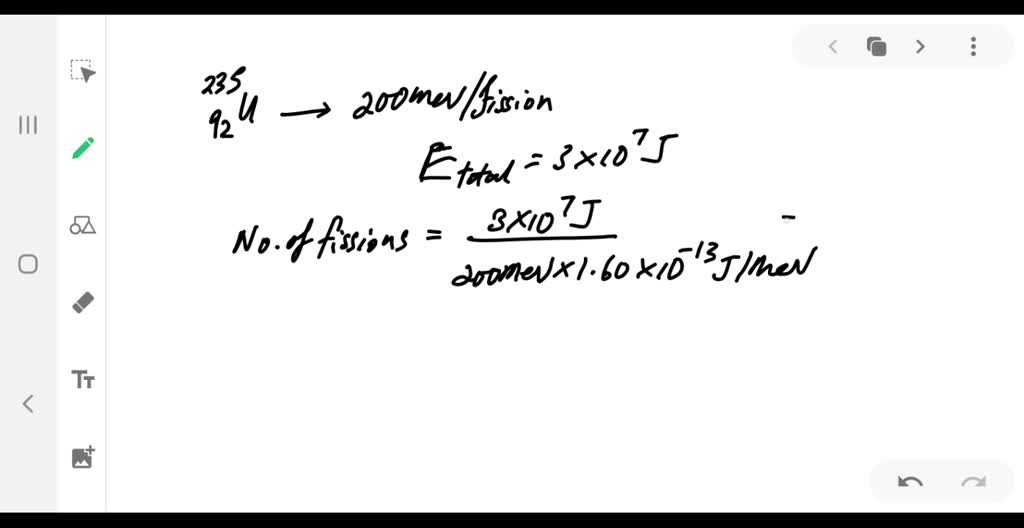 ²³⁵₉₂U → 200meV/fission
E total = 3×10⁷J
No. of fissions = 3×10⁷J / 200meV×1.60×10⁻¹³J/meV =
Tт